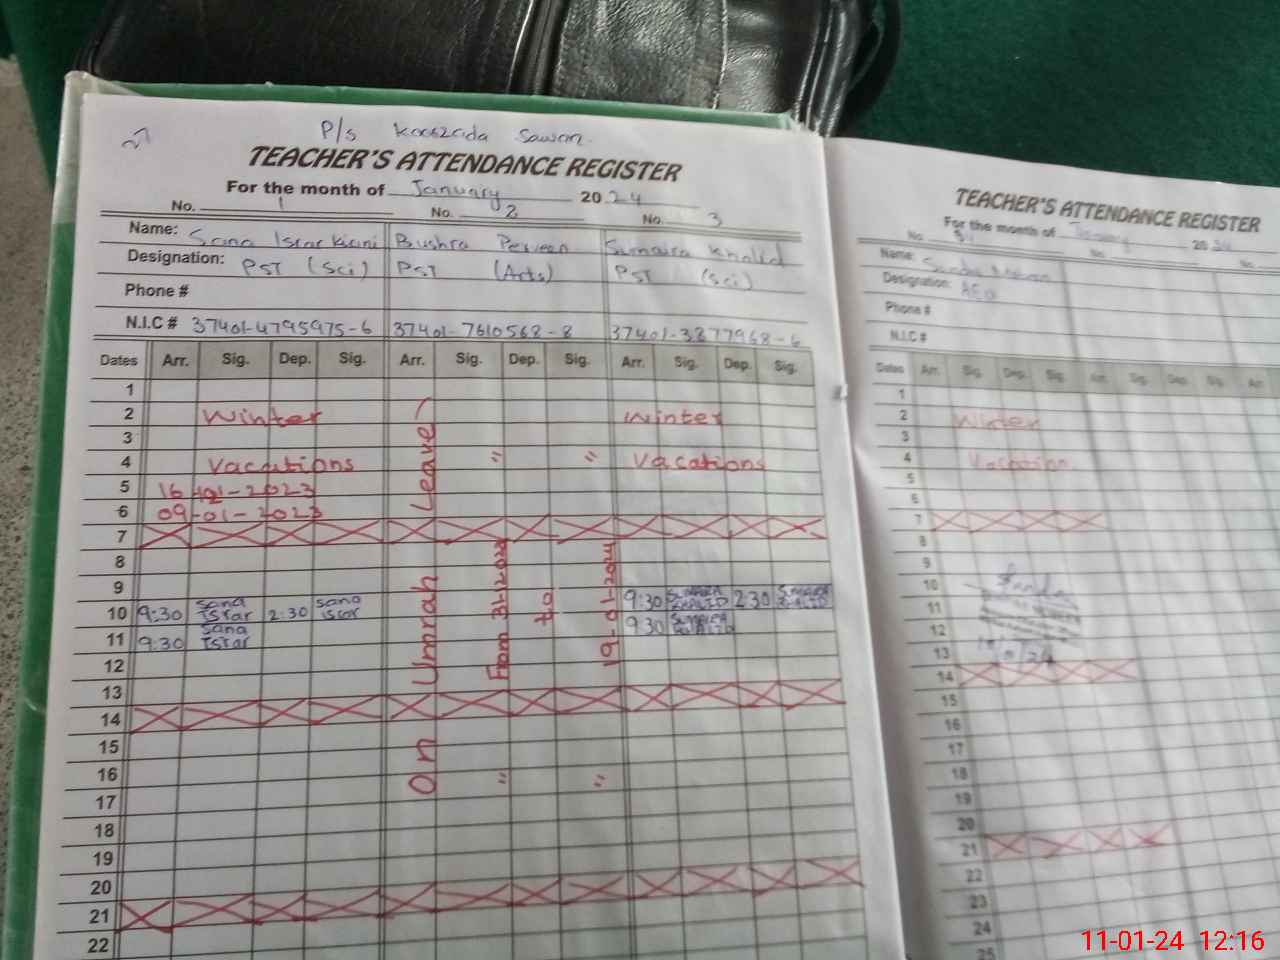 P/s Kaaszada Sawan
TEACHER'S ATTENDANCE REGISTER
For the month of January 2024
No. 1 No. 2 No. 3
Name: Sana Israr Kiani Bushra Perveen Sumaira Khalid
Designation: PST (Sci) PST (Arts) PST (Sci)
Phone #
N.I.C # 37401-4795975-6 37401-7610568-8 37401-3877968-6
Dates Arr. Sig. Dep. Sig. Arr. Sig. Dep. Sig. Arr. Sig. Dep. Sig.
1
2 Winter Winter
3
4 Vacations " " Vacations
5 16-01-2023
6 09-01-2023
7
8
9
10 9:30 Sana Israr 2:30 Sana Israr 9:30 SUMAIRA KHALID 2:30 SUMAIRA KHALID
11 9:30 Sana Israr 9:30 SUMAIRA KHALID
12
13
14
15
16 " "
17
18
19
20
21
22
On Umrah Leave
From 31-12-2023
to
19-01-2024
TEACHER'S ATTENDANCE REGISTER
For the month of January 2024
No. No. No.
Name:
Designation: AEO
Phone #
N.I.C #
Dates Arr. Sig. Dep. Sig. Arr. Sig. Dep. Sig. Arr.
1
2 Winter
3
4 Vacation
5
6
7
8
9
10
11
12
13
14
15
16
17
18
19
20
21
22
23
24
25
11-01-24 12:16